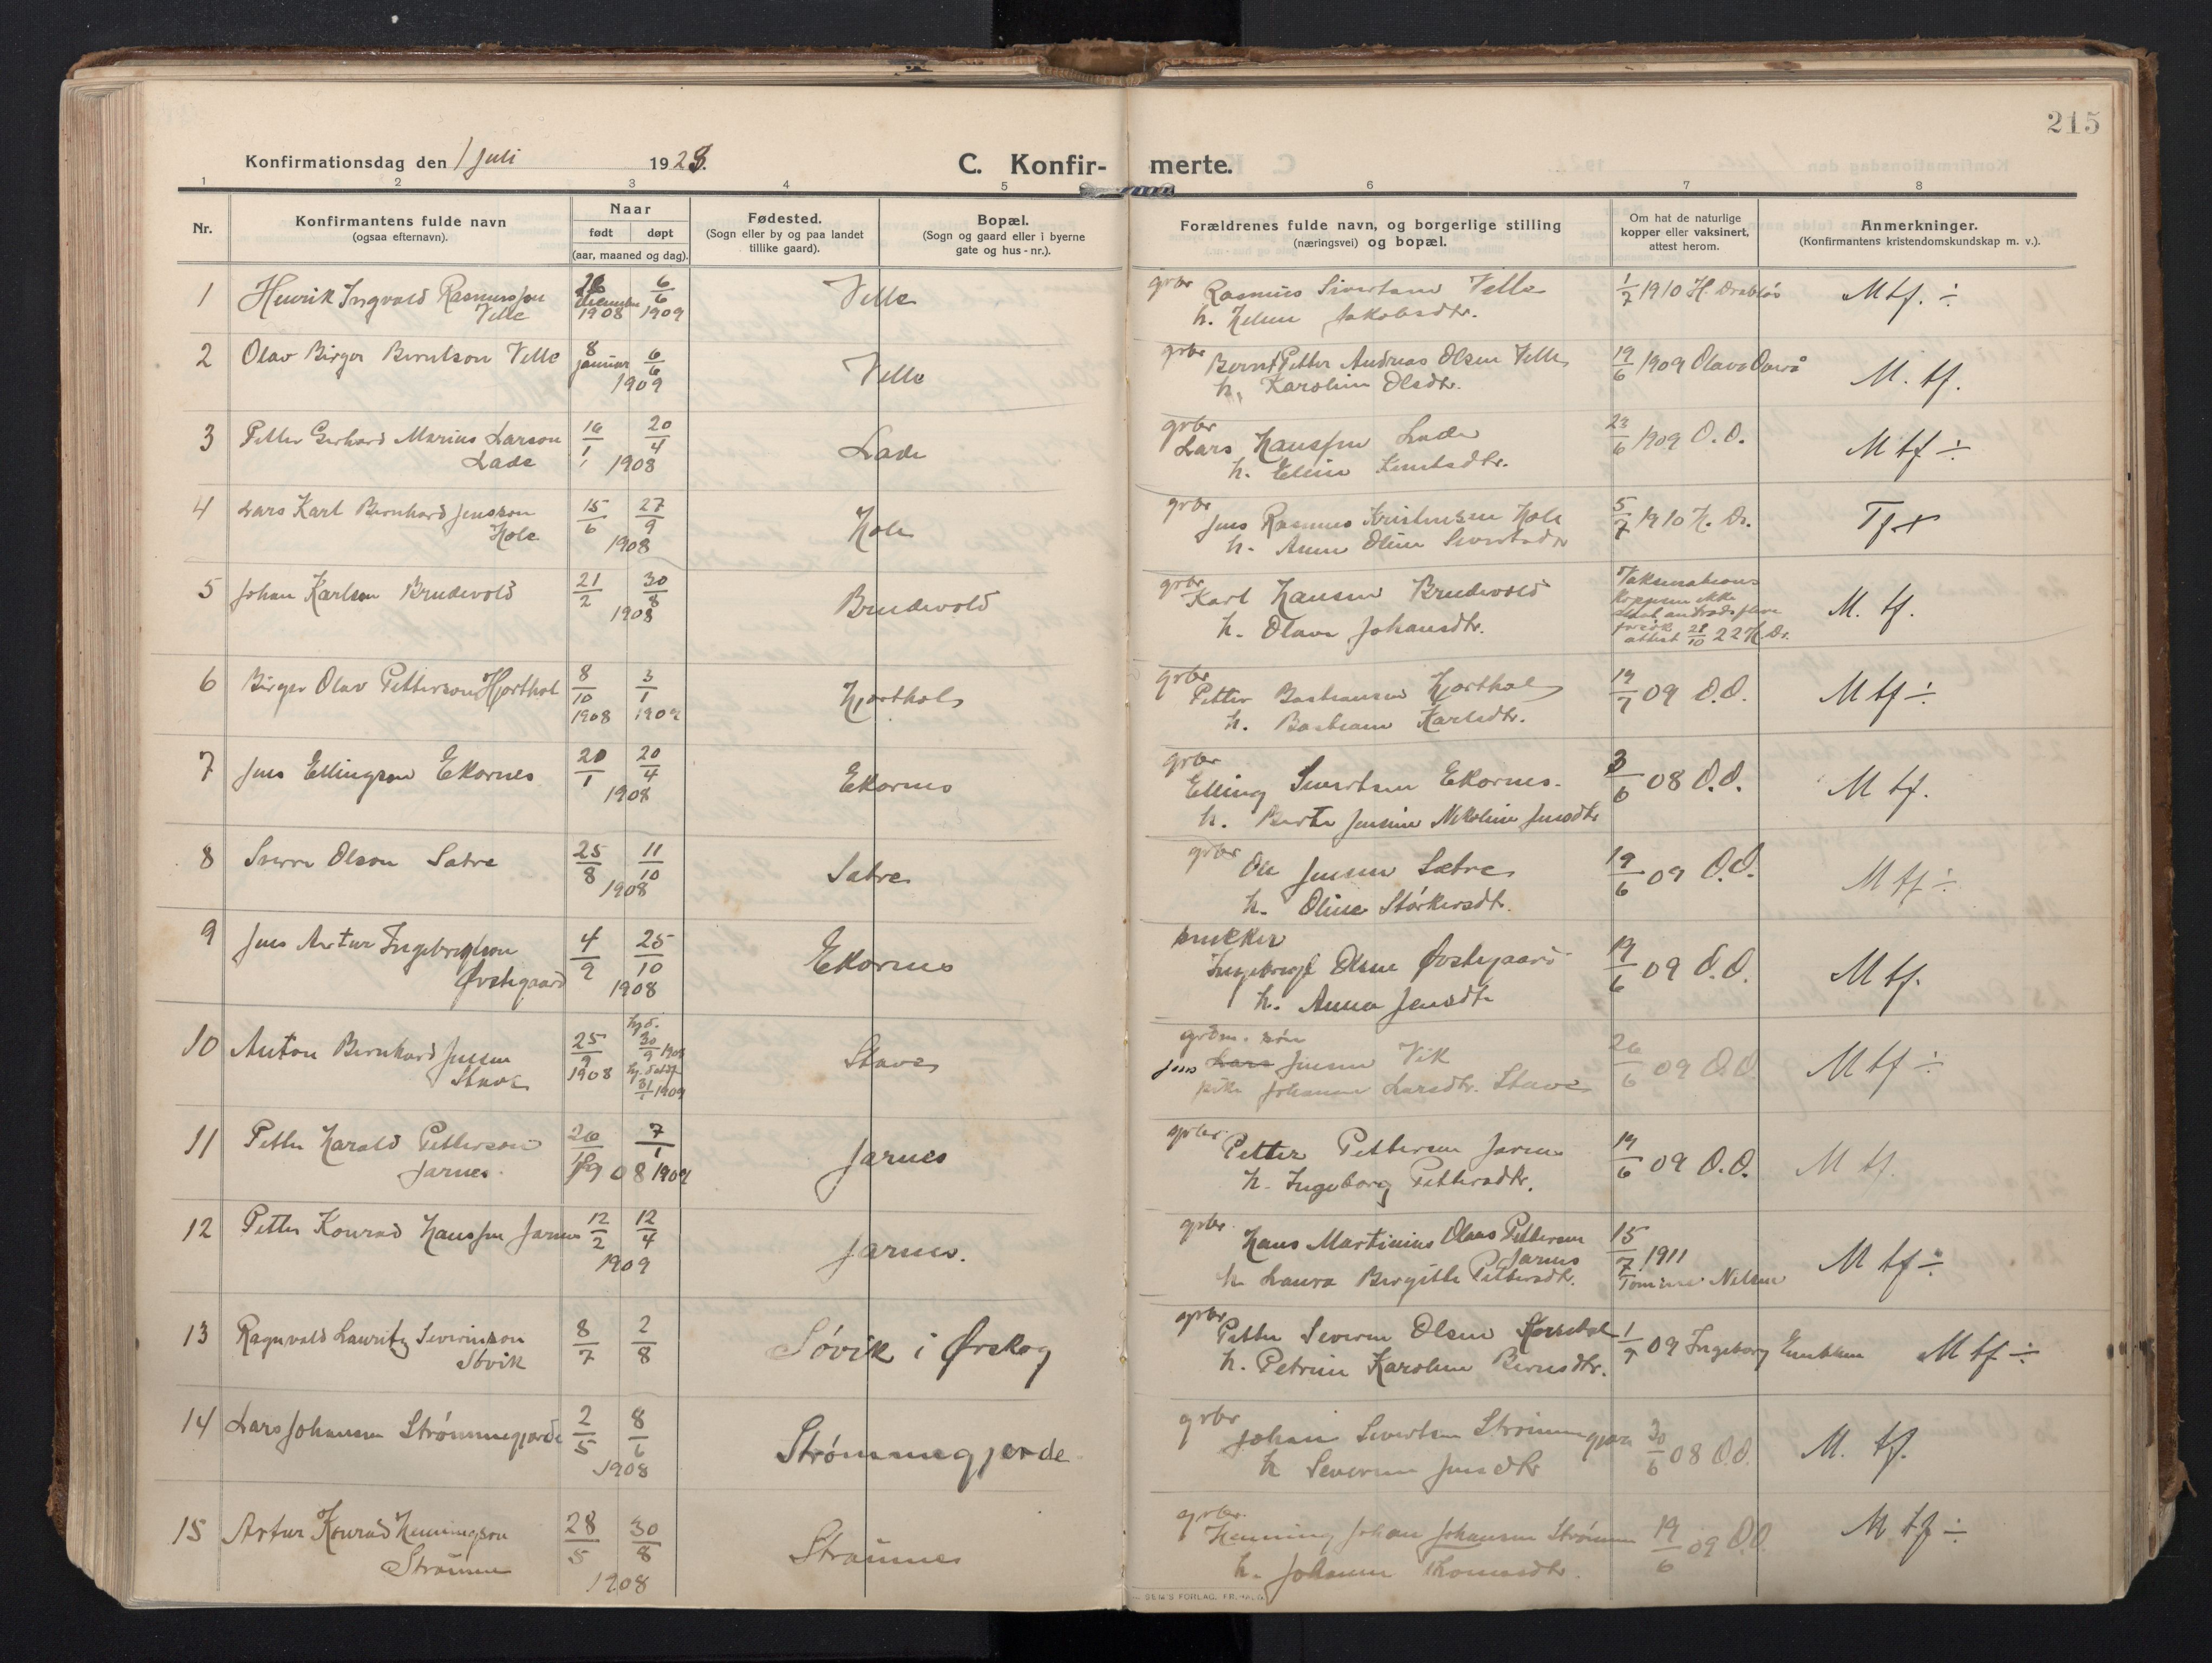 215
Konfirmationsdag den 1 juli 1923.
C. Konfir- merte.
1 2 3 4 5 6 7 8
Nr.
Konfirmantens fulde navn
(ogsaa efternavn).
Naar
født døpt
(aar, maaned og dag).
Fødested.
(Sogn eller by og paa landet
tillike gaard).
Bopæl.
(Sogn og gaard eller i byerne
gate og hus-nr.).
Forældrenes fulde navn, og borgerlige stilling
(næringsvei) og bopæl.
Om hat de naturlige
kopper eller vaksinert,
attest herom.
Anmerkninger.
(Konfirmantens kristendomskundskap m. v.).
1 Henrik Ingvald Rasmusson
Velle
december
1908
6/6
1909
Velle
grbr Rasmus Sivertsen Velle
h. Jakobsdtr.
1/7 1910 H.
Mtf. ÷
2 Olav Birger Berntson Velle
8
januar
6/6
1909
Velle
grbr Bernt Petter Andreas Olsen Velle
h. Karoline Olsdtr.
19/6 1909
M. tf.
3 Petter Gerhard Marius Larson
Lade
16/1 20/4
1908
Lade
grbr
Lars Hansen Lade
h. Knutsdtr.
23/6 1909 O.O.
M tf ÷
4 Lars Karl Bernhard Jensson
Hole
15/6 27/9
1908
Hole
grbr
Jens Rasmus Kristensen Hole
h. Anne Oline
5/7 1910 H. Dr.
Tf +
5 Johan Karlson Brudevold
21/2 30/8
1908
Brudevold
grbr
Karl Hansen Brudevold
h. Olave Johansdtr.
ikke
attest 28/10 22 H. Dr.
M. tf.
6 Birger Olav Petterson Hjorthol
8/10 3/1
1908 1909
Hjorthol
grbr
Petter Bastiansen Hjorthol
h. Karlsdtr.
19/7 09 O.O.
M tf ÷
7 Jens Ellingson Ekornes
20/1 20/4
1908
Ekornes
grbr
Elling Sivertsen Ekornes.
h. Berte Jensine Nikoline Jensdtr
3/6 08 O.O.
M tf.
8 Sverre Olson Sætre
25/8 11/10
1908
Sætre
grbr
Ole Jensen Sætre
h. Oline Størkersdtr.
19/6 09 O.O.
M tf ÷
9 Jens Artur Ingebrigtson
Øvstegaard
4/9 25/10
1908
Ekornes
snekker
Ingebrigt Olsen Øvstegaard
h. Anna Jensdtr
19/6 09 O.O.
M tf.
10 Anton Bernhard Jensen
Stave
25/9
1908
hj.d.
30/9 1908
31/1 1909
Stave
grdm. søn
Jens Lars Jensen Vik
pike Johanne Larsdtr. Stave
26/6 09 O.O.
M tf ÷
11 Petter Harald Petterson
Jarnes.
1908
7/1
1909
Jarnes
grbr.
Petter Pettersen Jarnes
h. Ingeborg Pettersdtr.
19/6 09 O.O.
M tf.
12 Petter Konrad Hansson Jarnes
12/2 12/4
1909
Jarnes.
grbr.
Hans Martinius Olaus Pettersen
Jarnes
h. Laura Birgitte Pettersdtr.
15/7 1911
Nilsen
M tf ÷
13 Ragnvald Lauritz Severinson
Søvik
8/7 2/8
Søvik i Ørskog
grbr
Petter Severin Olsen
h. Petrine Karoline Berntsdtr.
1/7 09 Ingeborg Emblem
M tf ÷
14 Lars Johansen Strømmegjerde
2/5 8/6
1908
Strømmegjerde
grbr
Johan Sivertsen Strømmegjerde
h Severine Jensdtr
30/6 08 O.O.
M. tf.
15 Artur Konrad Henningson
Straumen
28/5 30/8
1908
grbr.
Henning Johan Johansen
h. Johanne Thomasdtr.
19/6 09 O.O.
M tf ÷
SEM'S FORLAG, FR.HALD